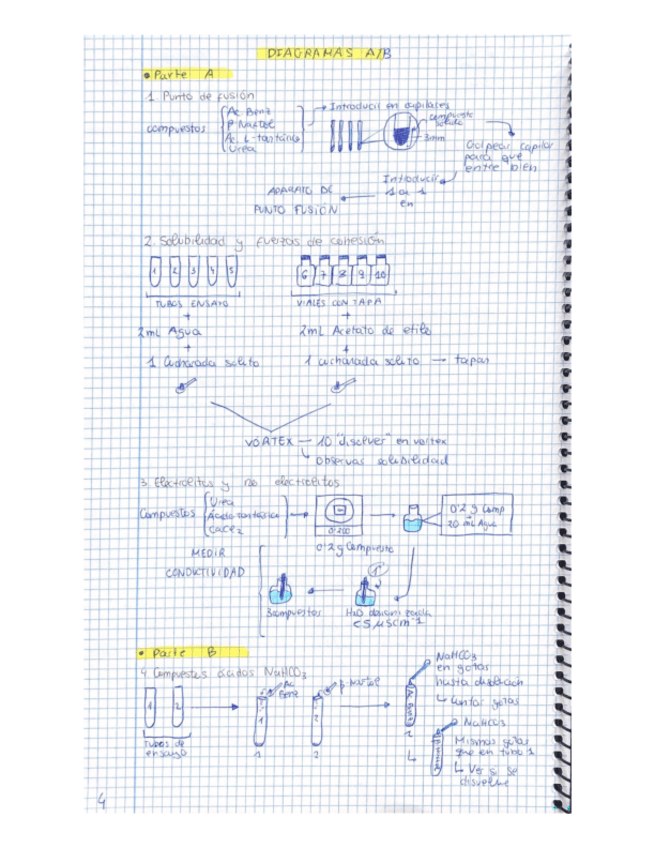 DIAGRAMAS A/B
• Parte A
1. Punto de fusión
compuestos
Ac. Benz
β Naftol
Ac. L-tartárico
Urea
Introducir en capilares
compuesto
sólido
3mm
Golpear capilar
para que
entre bien
Introducir
1 a 1
en
APARATO DE
PUNTO FUSIÓN
2. Solubilidad y fuerzas de cohesión
1 2 3 4 5
6 7 8 9 10
TUBOS ENSAYO
VIALES CON TAPA
+
+
2mL Agua
2mL Acetato de etilo
+
+
1 cucharada soluto
1 cucharada soluto → tapar
VORTEX — 10 "disolver" en vortex
Observas solubilidad
3. Electrolitos y no electrolitos
Compuestos
Urea
Ácido tartárico
CaCl2
0'200
0'2 g Compuesto
0'2 g Comp
20 mL Agua
MEDIR
CONDUCTIVIDAD
1º
3 compuestos
H2O
<5 μScm-1
• Parte B
4. Compuestos ácidos NaHCO3
1 2
Tubos de
ensayo
Ac
Benz
1
1
β-Naftol
2
2
NaHCO3
en gotas
hasta disolución
Contar gotas
1
NaHCO3
Mismas gotas
que en tubo 1
Ver si se
disuelve
4